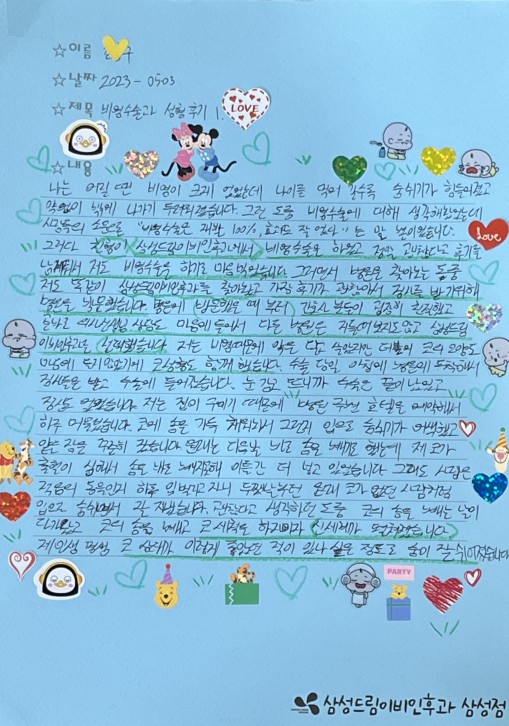 ☆이름
☆날짜 2023-0503
☆제목 비염수술과 성형 후기 1.
LOVE
☆내용
나는 어릴 땐 비염이 크게 없었는데 나이를 먹어 갈수록 숨쉬기가 힘들어졌고
약없이 밖에 나가기 두려워졌습니다. 그런 도중 비염수술에 대해 생각해봤었는데
사람들의 소문으로 "비염수술은 재발 100%, 효과도 작았다" 는 말 뿐이였습니다.
Love
그러다 친형이 삼성드림이비인후과에서 비염수술을 하였고 정말 괜찮다고 후기를
남겨줘서 저도 비염수술을 하기로 마음먹었습니다. 그러면서 병원을 찾아보는 도중
저도 똑같이 삼성드림이비인후과를 찾아보고 가장 후기가 괜찮아서 진료를 받기위해
병원을 방문했습니다. 병원에 방문했을 때 부터 간호사 분들이 굉장히 친절하고
의사선생님 상담도 마음에 들어서 다른 병원은 지원해보지도않고 삼성드림
이비인후과로 선택했습니다. 저는 비염때문에 않은 코의 모양도
코성형도 함께 했습니다. 수술 당일 아침에 병원에 도착해서
검사들을 받고 수술에 들어갔습니다. 눈 감고 뜨니까 수술은 끝이 났었고
없었습니다. 저는 집이 구미기 때문에 병원 주변 호텔을 예약해서
하루 머물렀습니다. 코에 솜을 가득 채워놔서 그런지 입으로 숨쉬기가 어색했고
얕은 잠을 꾸준히 잤습니다. 원래는 다음날 바로 솜을 빼기로 했는데 제 코가
심해서 솜을 바로 빼지못해 이틀간 더 넣고 있었습니다. 그래도 사람은
적응의 동물인지 하루 입벌리고자니 두쨋날부턴 원래 코가 없던 사람처럼
입으로 숨쉬면서 잘 잤습니다. 괜찮다고 생각하던 도중 코의 솜을 빼는 날이
다가왔고 코의 솜을 빼고 코세척을 하자마자 신세계가 펼쳐졌습니다
제인생 평생 코 상태가 이렇게 좋았던 적이 있나 싶을 정도로 숨이 잘 쉬어졌습니다
PARTY
삼성드림이비인후과 삼성점